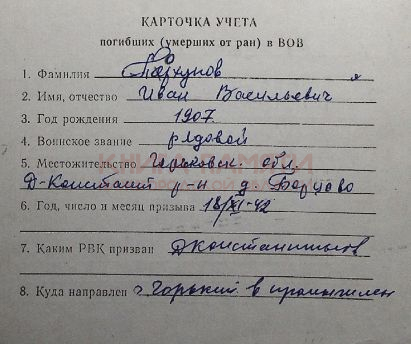 КАРТОЧКА УЧЕТА
погибших (умерших от ран) в ВОВ
1. Фамилия Пархунов
2. Имя, отчество Иван Васильевич
3. Год рождения 1907
4. Воинское звание рядовой
5. Местожительство Горьковск. обл.
Д-Констант р-н д. Борцово
6. Год, число и месяц призыва 18/XI-42
7. Каким РВК призван Дконстантинов
8. Куда направлен г Горький в